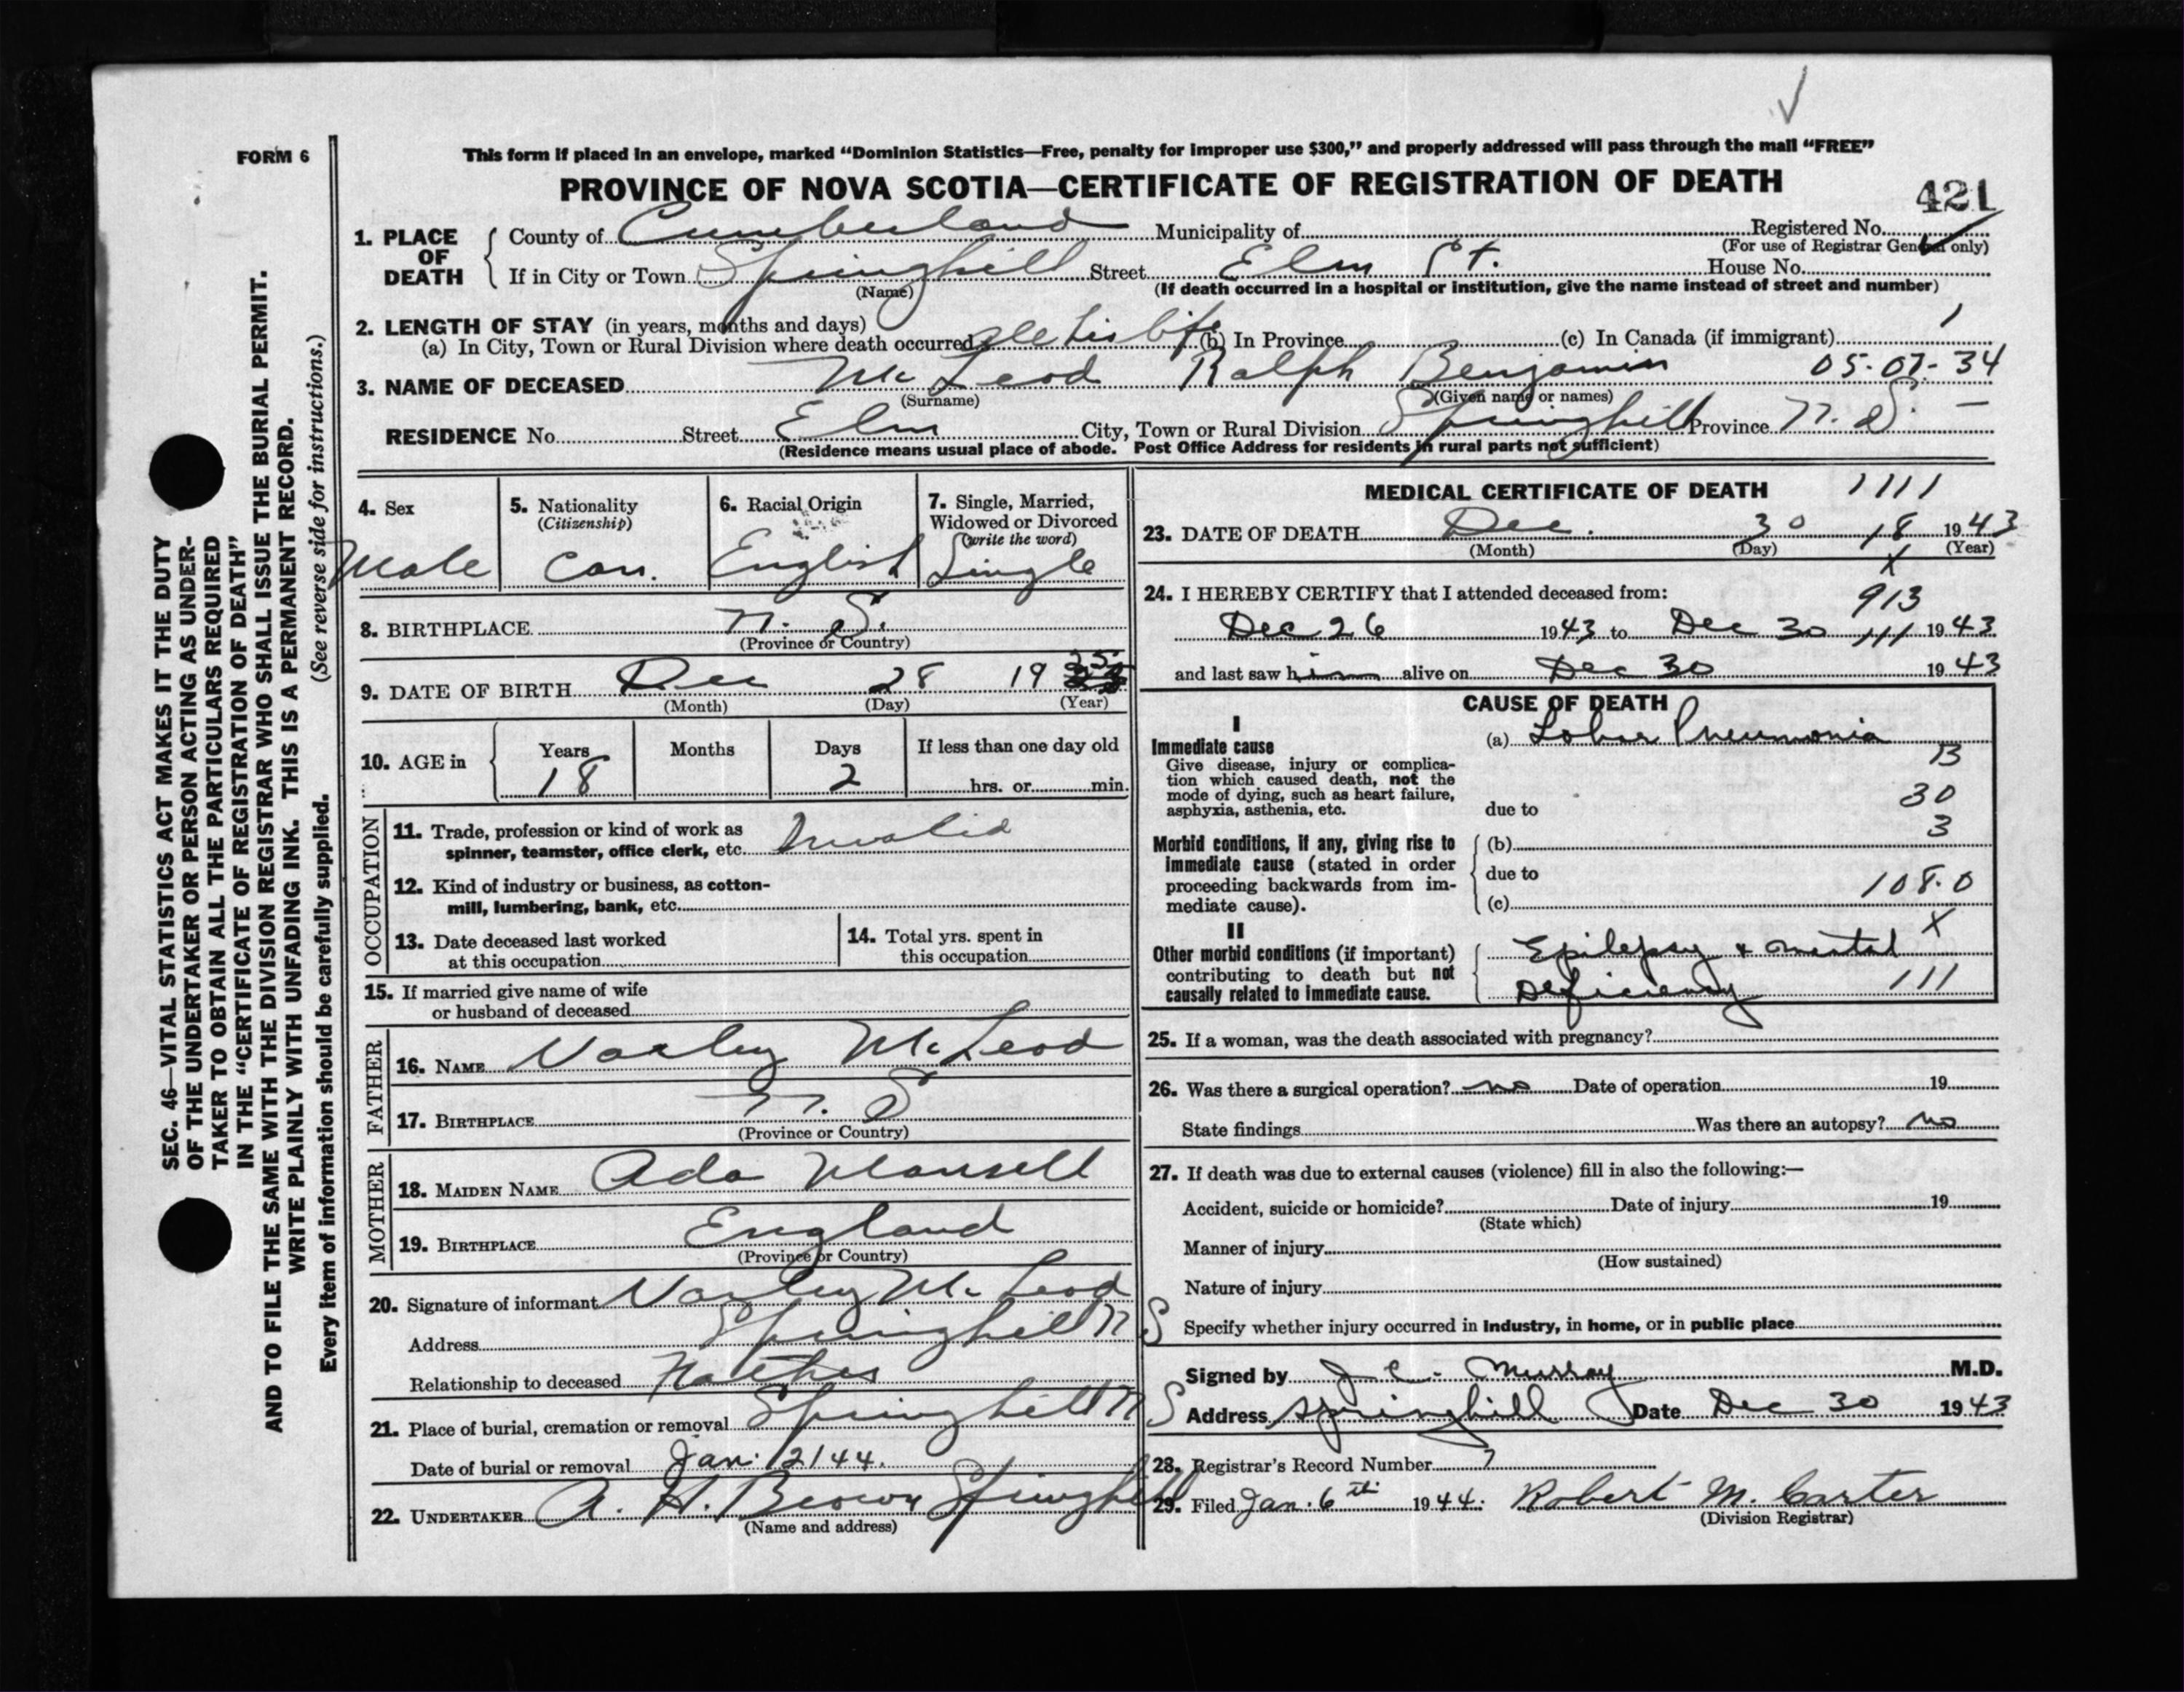 FORM 6
This form if placed in an envelope, marked “Dominion Statistics—Free, penalty for improper use $300,” and properly addressed will pass through the mail “FREE”
PROVINCE OF NOVA SCOTIA—CERTIFICATE OF REGISTRATION OF DEATH
421
1. PLACE OF DEATH
County of Cumberland Municipality of Registered No.
(For use of Registrar General only)
If in City or Town Springhill Street Elm St. House No.
(Name) (If death occurred in a hospital or institution, give the name instead of street and number)
2. LENGTH OF STAY (in years, months and days)
(a) In City, Town or Rural Division where death occurred all his life (b) In Province (c) In Canada (if immigrant) 1
3. NAME OF DECEASED McLeod Ralph Benjamin 05-07-34
(Surname) (Given name or names)
RESIDENCE No. Street Elm City, Town or Rural Division Springhill Province N. S. —
(Residence means usual place of abode. Post Office Address for residents in rural parts not sufficient)
4. Sex
Male
5. Nationality
(Citizenship)
Can.
6. Racial Origin
English
7. Single, Married,
Widowed or Divorced
(write the word)
Single
8. BIRTHPLACE N. S.
(Province or Country)
9. DATE OF BIRTH Dec 28 19 25
(Month) (Day) (Year)
10. AGE in Years Months Days If less than one day old
18 2 hrs. or min.
OCCUPATION
11. Trade, profession or kind of work as
spinner, teamster, office clerk, etc. Invalid
12. Kind of industry or business, as cotton-
mill, lumbering, bank, etc.
13. Date deceased last worked
at this occupation
14. Total yrs. spent in
this occupation
15. If married give name of wife
or husband of deceased
FATHER
16. NAME Varley McLeod
17. BIRTHPLACE N. S
(Province or Country)
MOTHER
18. MAIDEN NAME Ada Mansell
19. BIRTHPLACE England
(Province or Country)
20. Signature of informant Varley McLeod
Address Springhill N S
Relationship to deceased
21. Place of burial, cremation or removal Springhill N S
Date of burial or removal Jan. 2/44.
22. UNDERTAKER A. H. Brown Springhill
(Name and address)
MEDICAL CERTIFICATE OF DEATH 1111
23. DATE OF DEATH Dec. 30 18 1943
(Month) (Day) (Year)
X
24. I HEREBY CERTIFY that I attended deceased from:
913
Dec 26 1943 to Dec 30 111 1943
and last saw him alive on Dec 30 1943
CAUSE OF DEATH
I
Immediate cause
Give disease, injury or complica-
tion which caused death, not the
mode of dying, such as heart failure,
asphyxia, asthenia, etc.
(a) Lobar Pneumonia
B
30
due to
3
Morbid conditions, if any, giving rise to
immediate cause (stated in order
proceeding backwards from im-
mediate cause).
(b)
due to
108.0
(c)
X
II
Other morbid conditions (if important)
contributing to death but not
causally related to immediate cause.
Epilepsy & mental
Deficiency 111
25. If a woman, was the death associated with pregnancy?
26. Was there a surgical operation? no Date of operation 19
State findings Was there an autopsy? no
27. If death was due to external causes (violence) fill in also the following:—
Accident, suicide or homicide? Date of injury 19
(State which)
Manner of injury
(How sustained)
Nature of injury
Specify whether injury occurred in industry, in home, or in public place
Signed by J. C. Murray M.D.
Address Springhill Date Dec 30 1943
28. Registrar's Record Number 7
29. Filed Jan. 6th 1944. Robert M. Carter
(Division Registrar)
SEC. 46—VITAL STATISTICS ACT MAKES IT THE DUTY
OF THE UNDERTAKER OR PERSON ACTING AS UNDER-
TAKER TO OBTAIN ALL THE PARTICULARS REQUIRED
IN THE “CERTIFICATE OF REGISTRATION OF DEATH”
AND TO FILE THE SAME WITH THE DIVISION REGISTRAR WHO SHALL ISSUE THE BURIAL PERMIT.
WRITE PLAINLY WITH UNFADING INK. THIS IS A PERMANENT RECORD.
Every item of information should be carefully supplied. (See reverse side for instructions.)